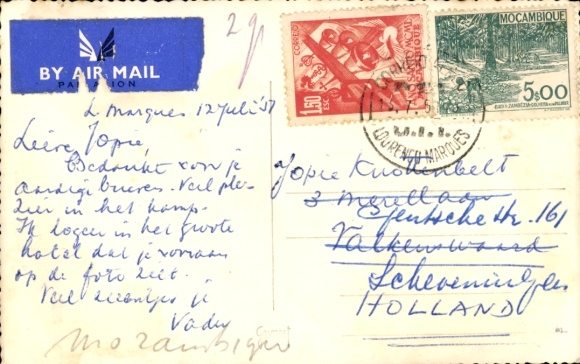 2 gr
BY AIR MAIL
PAR AVION
CORREIO
MOÇAMBIQUE
1.60
ESC.
5$00
LOURENÇO MARQUES
L. Marques 12 Juli '51
Lieve Jopie,
Bedankt voor je
aardige brieven. Veel ple-
zier in het kamp.
Ik logeer in het groote
hotel dat je vooraan
op de foto ziet.
Veel zoentjes je
Vader
Mozambique
Jopie
3 Merellaan
Gentschestr. 161
Valkenswaard
Scheveningen
HOLLAND